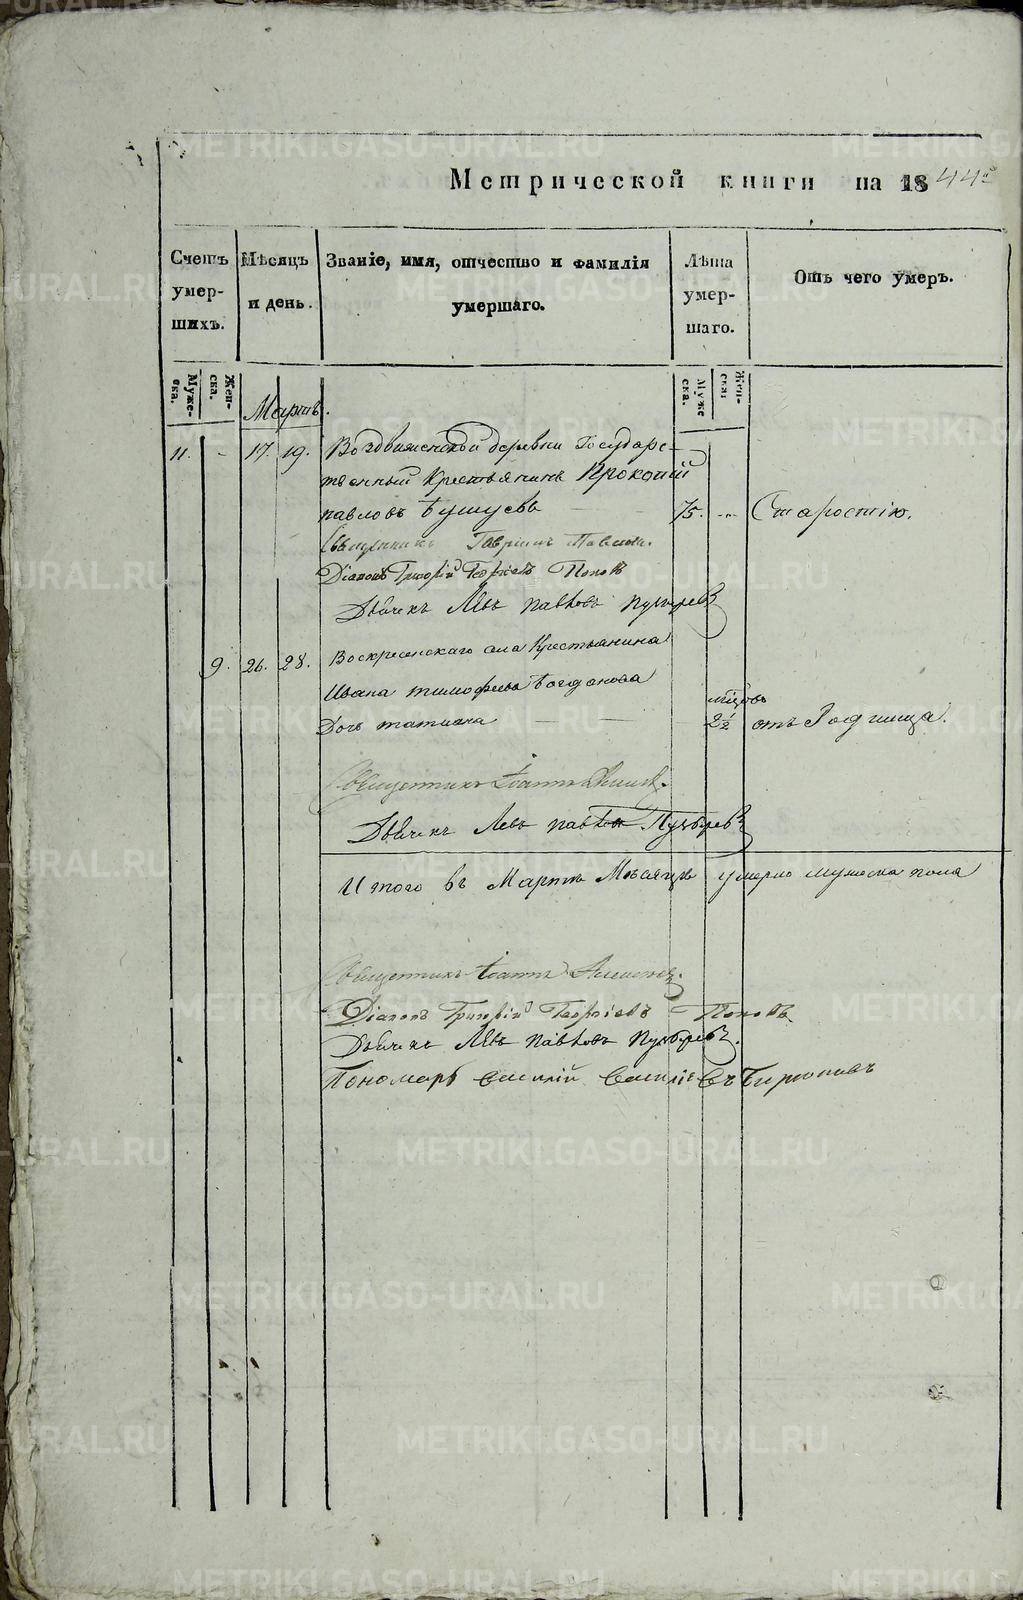 Метрической книги на 1844й
Счетъ умер- шихъ.
Мѣсяцъ и день.
Званіе, имя, отчество и фамилія умершаго.
Лѣта умер- шаго.
Отъ чего умеръ.
Муже- ска.
Жен- ска.
Муже ска.
Жен- ска:
Мартъ.
11. - 17. 19. Воздвиженской деревни Государс-
твенный Крестьянинъ Прокопій
павловъ 75. Старостію.
Священникъ Гавріилъ
Діаконъ Григорій Георгіевъ Поповъ
Дьячекъ Левъ павловъ Пузыревъ
9. 26. 28. Воскресенскаго села Крестьянина
Ивана тимофѣева Богданова мѣсцовъ
Дочь татиана — — 2½ отъ Родимца.
Священникъ Іоаннъ
Дьячекъ Левъ павловъ Пузыревъ
Итого въ Мартѣ Мѣсяцѣ умерло мужеска пола
Священникъ Іоаннъ
Діаконъ Григорій Георгіевъ Поповъ
Дьячекъ Левъ павловъ Пузыревъ.
Пономарь Василій Василіевъ Бирюковъ
METRIKI.GASO-URAL.RU